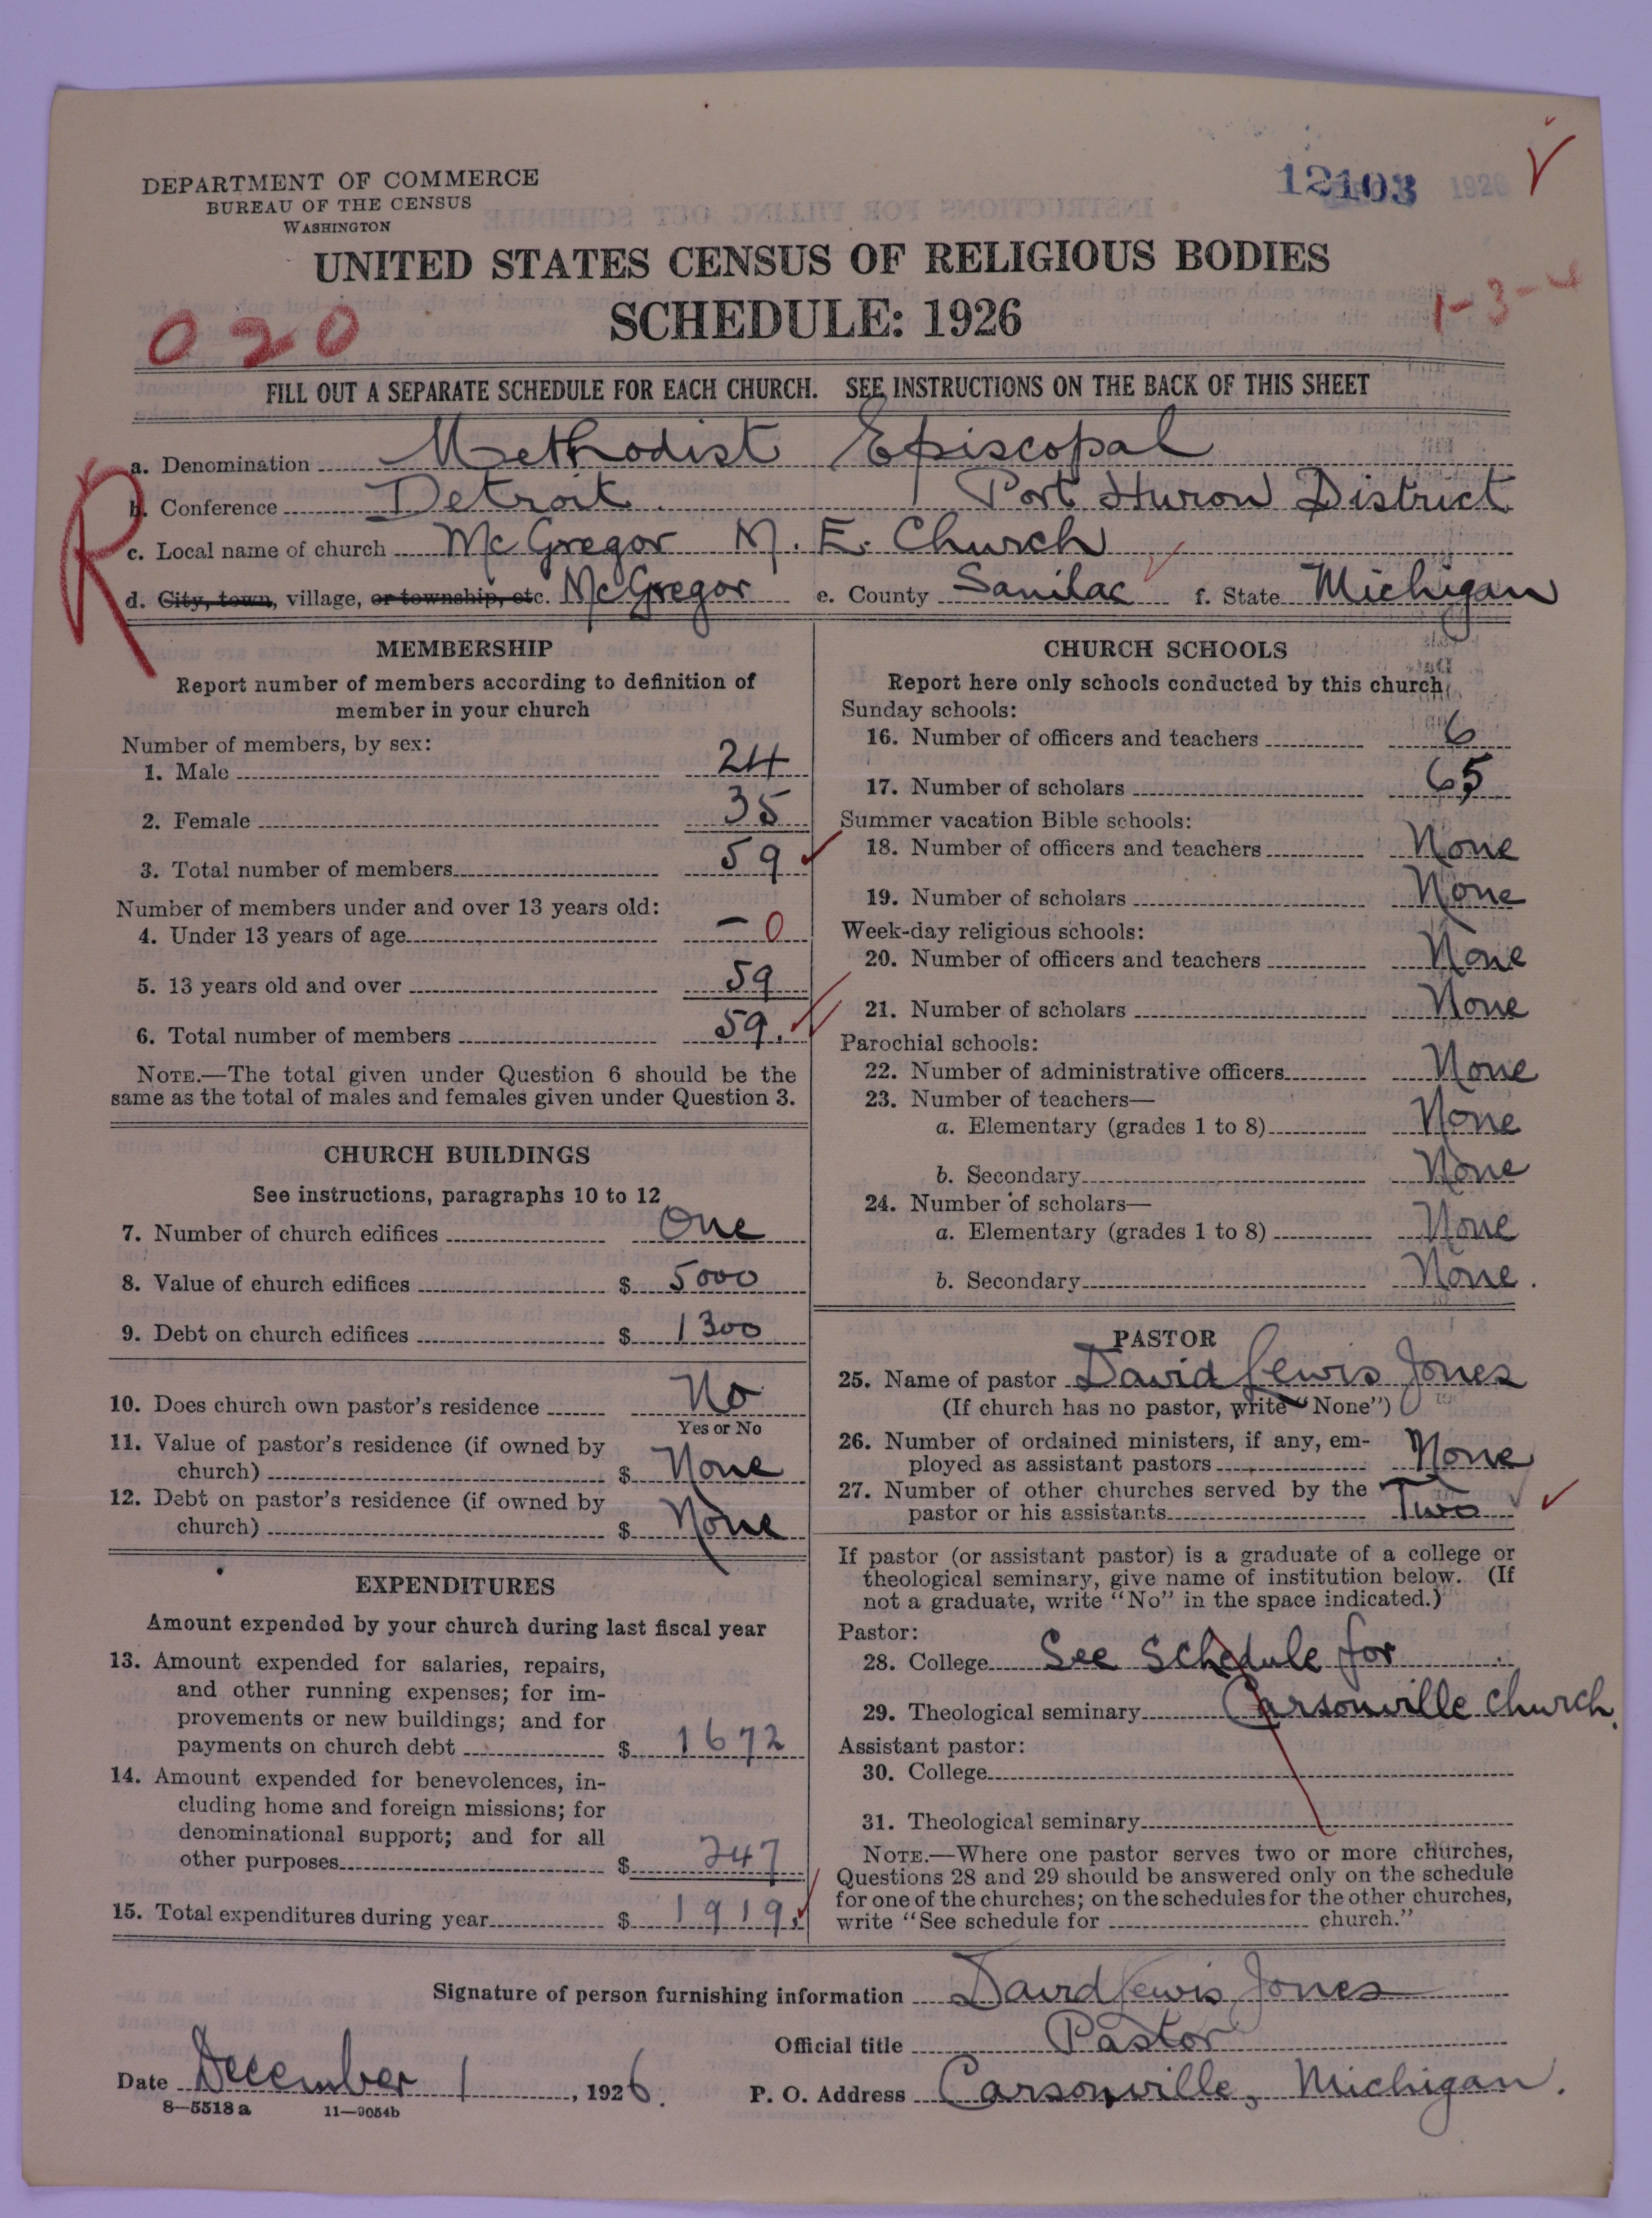 DEPARTMENT OF COMMERCE
BUREAU OF THE CENSUS
WASHINGTON
12103 1926
UNITED STATES CENSUS OF RELIGIOUS BODIES
SCHEDULE: 1926
020
1-3-4
FILL OUT A SEPARATE SCHEDULE FOR EACH CHURCH. SEE INSTRUCTIONS ON THE BACK OF THIS SHEET
R
a. Denomination Methodist Episcopal
b. Conference Detroit Port Huron District
c. Local name of church McGregor M. E. Church
d. City, town, village, or township, etc. McGregor e. County Sanilac f. State Michigan
MEMBERSHIP
Report number of members according to definition of
member in your church
Number of members, by sex:
1. Male 24
2. Female 35
3. Total number of members 59
Number of members under and over 13 years old:
4. Under 13 years of age – 0
5. 13 years old and over 59
6. Total number of members 59.
NOTE.—The total given under Question 6 should be the
same as the total of males and females given under Question 3.
CHURCH BUILDINGS
See instructions, paragraphs 10 to 12
7. Number of church edifices One
8. Value of church edifices $ 5000
9. Debt on church edifices $ 1300
10. Does church own pastor's residence No
Yes or No
11. Value of pastor's residence (if owned by
church) $ None
12. Debt on pastor's residence (if owned by
church) $ None
EXPENDITURES
Amount expended by your church during last fiscal year
13. Amount expended for salaries, repairs,
and other running expenses; for im-
provements or new buildings; and for
payments on church debt $ 1672
14. Amount expended for benevolences, in-
cluding home and foreign missions; for
denominational support; and for all
other purposes $ 247
15. Total expenditures during year $ 1919.
CHURCH SCHOOLS
Report here only schools conducted by this church
Sunday schools:
16. Number of officers and teachers 6
17. Number of scholars 65
Summer vacation Bible schools:
18. Number of officers and teachers None
19. Number of scholars None
Week-day religious schools:
20. Number of officers and teachers None
21. Number of scholars None
Parochial schools:
22. Number of administrative officers None
23. Number of teachers—
a. Elementary (grades 1 to 8) None
b. Secondary None
24. Number of scholars—
a. Elementary (grades 1 to 8) None
b. Secondary None.
PASTOR
25. Name of pastor David Lewis Jones
(If church has no pastor, write "None")
26. Number of ordained ministers, if any, em-
ployed as assistant pastors None
27. Number of other churches served by the
pastor or his assistants Two
If pastor (or assistant pastor) is a graduate of a college or
theological seminary, give name of institution below. (If
not a graduate, write "No" in the space indicated.)
Pastor:
28. College See Schedule for
29. Theological seminary Carsonville Church.
Assistant pastor:
30. College
31. Theological seminary
NOTE.—Where one pastor serves two or more churches,
Questions 28 and 29 should be answered only on the schedule
for one of the churches; on the schedules for the other churches,
write "See schedule for church."
Signature of person furnishing information David Lewis Jones
Official title Pastor
Date December 1, 1926. P. O. Address Carsonville, Michigan.
8—5518 a 11—9054b